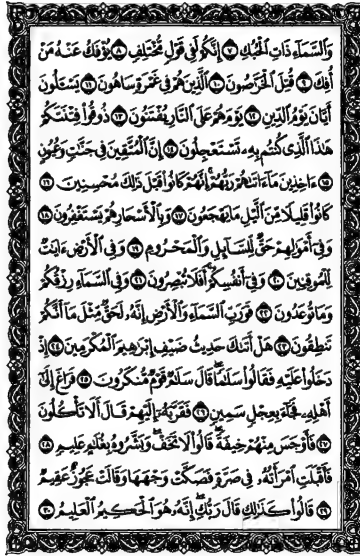 وَالسَّمَاءِ ذَاتِ الْحُبُكِ ٧ إِنَّكُمْ لَفِي قَوْلٍ مُّخْتَلِفٍ ٨ يُؤْفَكُ عَنْهُ مَنْ
أُفِكَ ٩ قُتِلَ الْخَرَّاصُونَ ١٠ الَّذِينَ هُمْ فِي غَمْرَةٍ سَاهُونَ ١١ يَسْـَٔلُونَ
أَيَّانَ يَوْمُ الدِّينِ ١٢ يَوْمَ هُمْ عَلَى النَّارِ يُفْتَنُونَ ١٣ ذُوقُوا۟ فِتْنَتَكُمْ
هَٰذَا الَّذِي كُنتُم بِهِۦ تَسْتَعْجِلُونَ ١٤ إِنَّ الْمُتَّقِينَ فِي جَنَّٰتٍ وَعُيُونٍ
١٥ ءَاخِذِينَ مَآ ءَاتَىٰهُمْ رَبُّهُمْ إِنَّهُمْ كَانُوا۟ قَبْلَ ذَٰلِكَ مُحْسِنِينَ ١٦
كَانُوا۟ قَلِيلًا مِّنَ الَّيْلِ مَا يَهْجَعُونَ ١٧ وَبِالْأَسْحَارِ هُمْ يَسْتَغْفِرُونَ ١٨
وَفِيٓ أَمْوَٰلِهِمْ حَقٌّ لِّلسَّآئِلِ وَالْمَحْرُومِ ١٩ وَفِي الْأَرْضِ ءَايَٰتٌ
لِّلْمُوقِنِينَ ٢٠ وَفِيٓ أَنفُسِكُمْ أَفَلَا تُبْصِرُونَ ٢١ وَفِي السَّمَآءِ رِزْقُكُمْ
وَمَا تُوعَدُونَ ٢٢ فَوَرَبِّ السَّمَآءِ وَالْأَرْضِ إِنَّهُۥ لَحَقٌّ مِّثْلَ مَآ أَنَّكُمْ
تَنطِقُونَ ٢٣ هَلْ أَتَىٰكَ حَدِيثُ ضَيْفِ إِبْرَٰهِيمَ الْمُكْرَمِينَ ٢٤ إِذْ
دَخَلُوا۟ عَلَيْهِ فَقَالُوا۟ سَلَٰمًا قَالَ سَلَٰمٌ قَوْمٌ مُّنكَرُونَ ٢٥ فَرَاغَ إِلَىٰٓ
أَهْلِهِۦ فَجَآءَ بِعِجْلٍ سَمِينٍ ٢٦ فَقَرَّبَهُۥٓ إِلَيْهِمْ قَالَ أَلَا تَأْكُلُونَ
٢٧ فَأَوْجَسَ مِنْهُمْ خِيفَةً قَالُوا۟ لَا تَخَفْ وَبَشَّرُوهُ بِغُلَٰمٍ عَلِيمٍ ٢٨
فَأَقْبَلَتِ امْرَأَتُهُۥ فِي صَرَّةٍ فَصَكَّتْ وَجْهَهَا وَقَالَتْ عَجُوزٌ عَقِيمٌ
٢٩ قَالُوا۟ كَذَٰلِكِ قَالَ رَبُّكِ إِنَّهُۥ هُوَ الْحَكِيمُ الْعَلِيمُ ٣٠